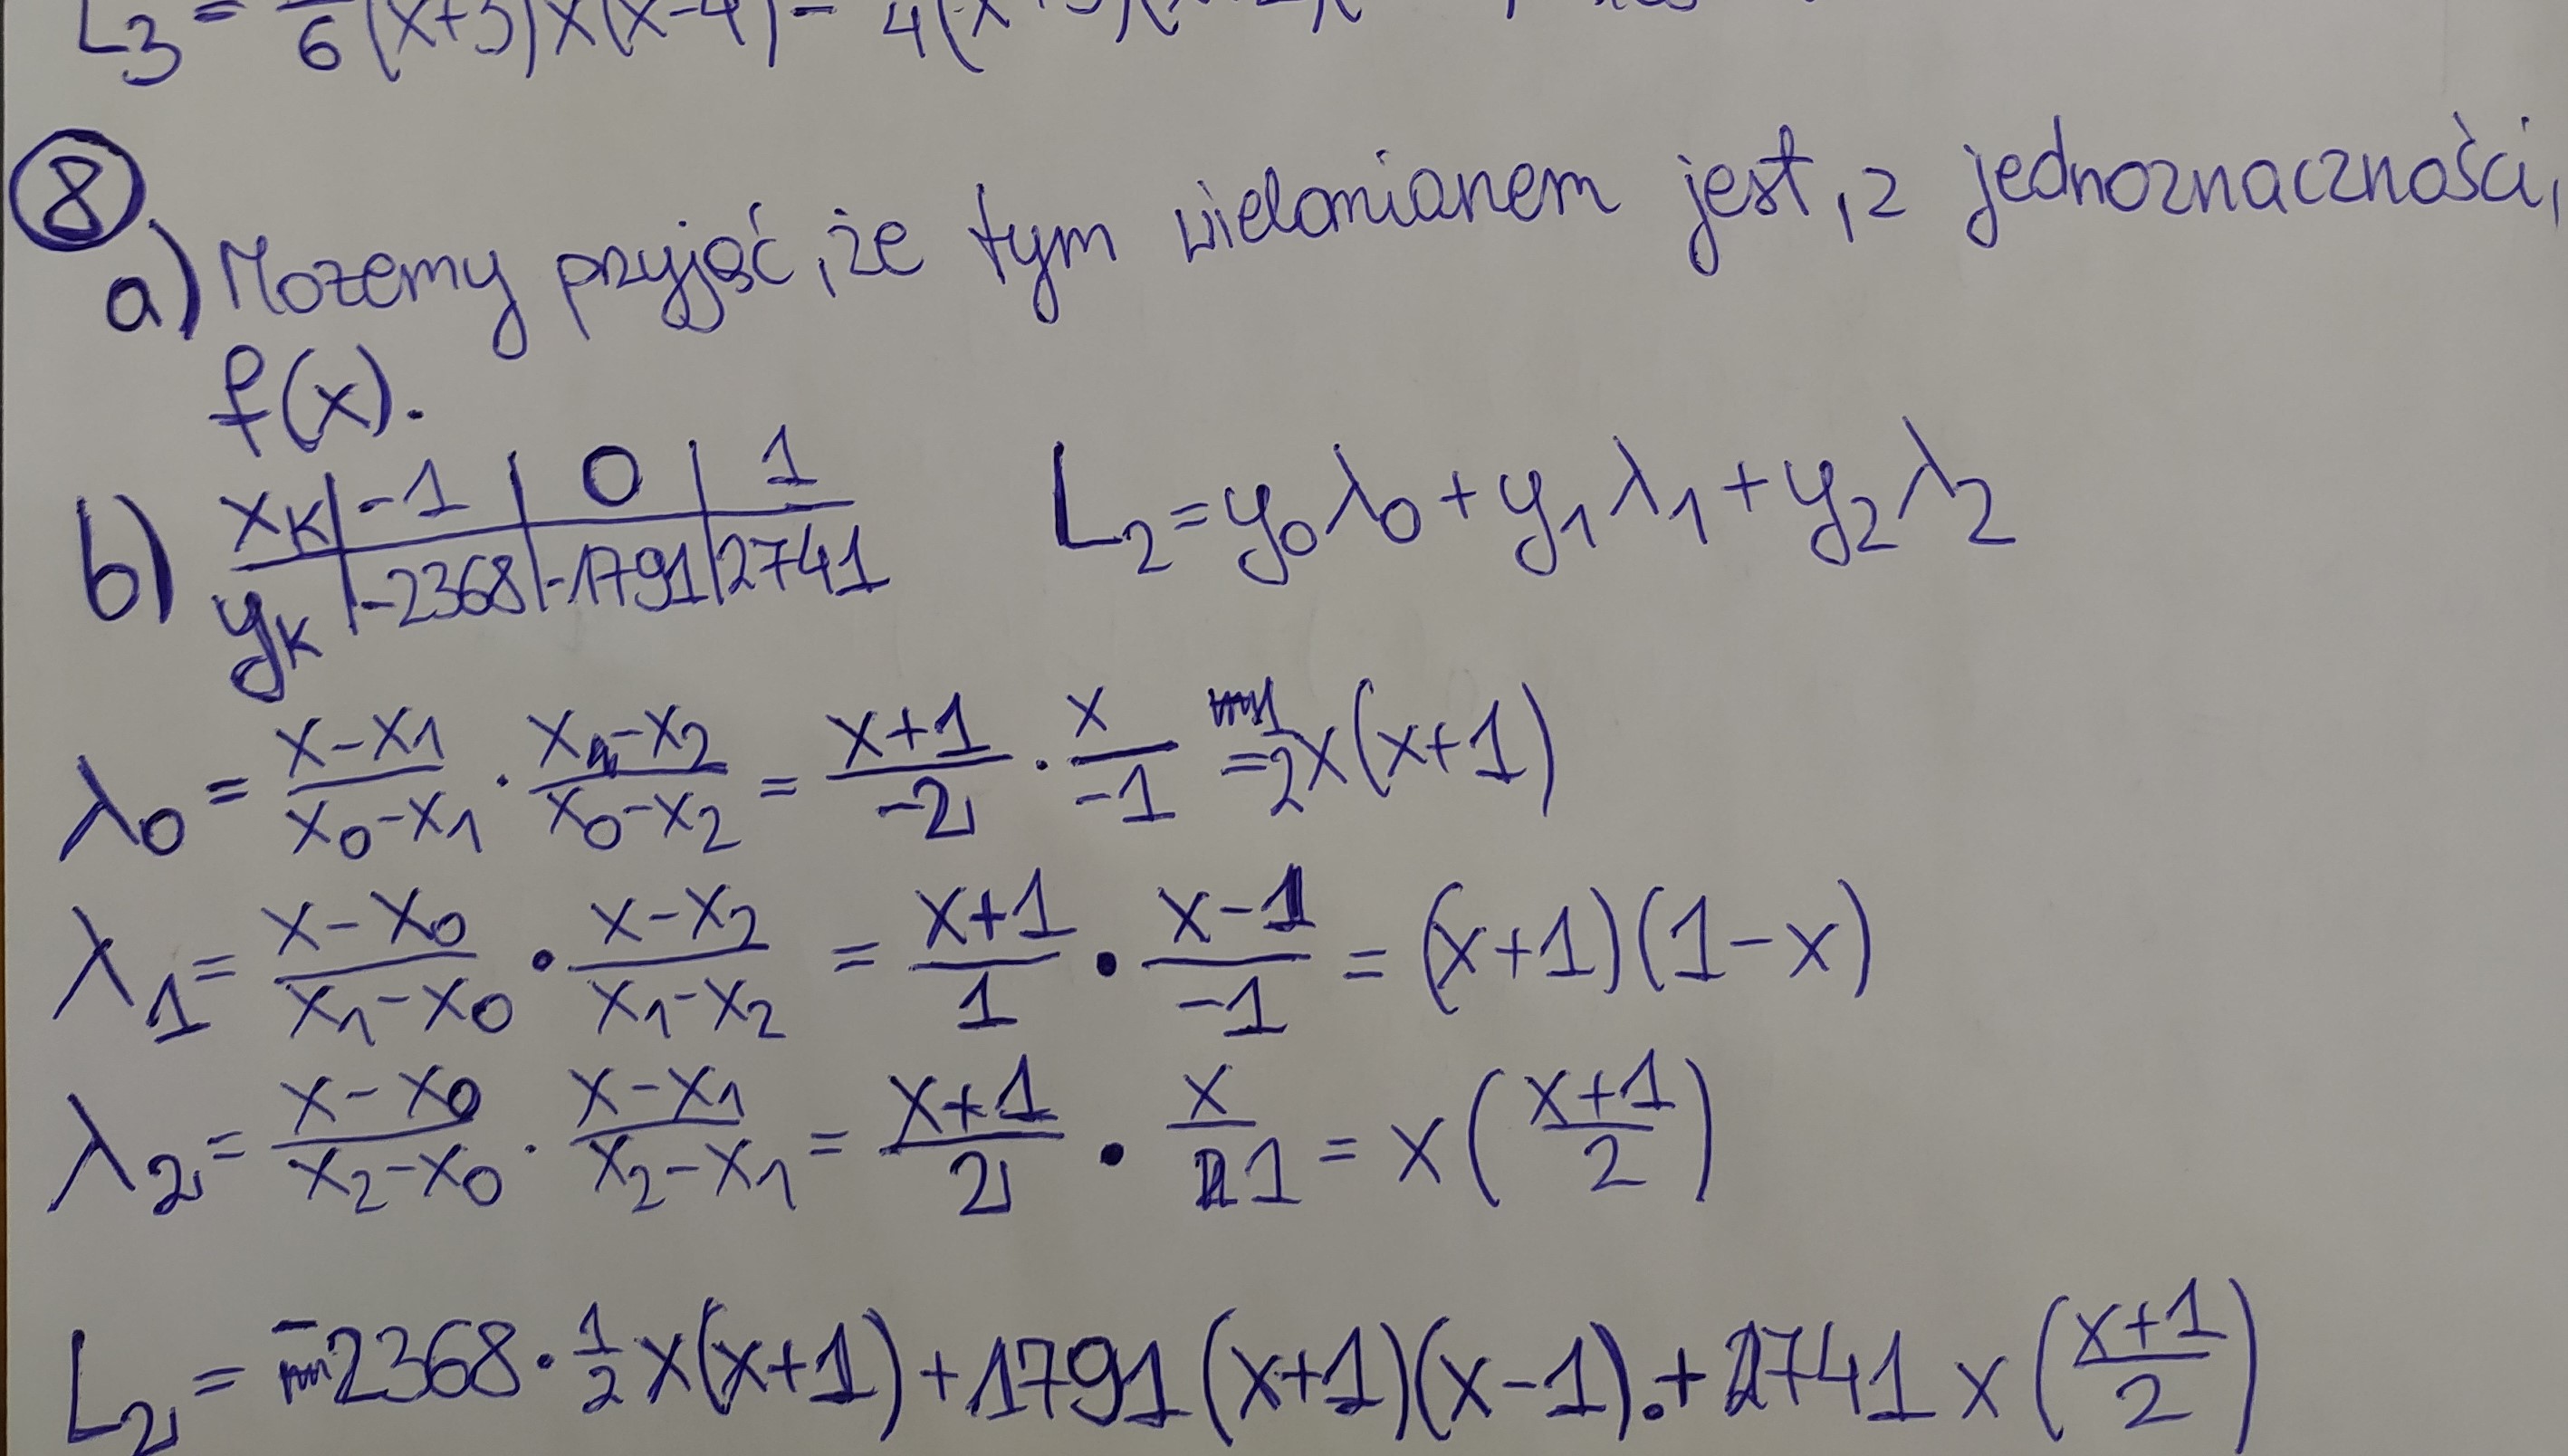 L₃ = 6 (x+3)x(x-4) - 4
⑧
a) Możemy przyjąć, że tym wielomianem jest, z jednoznaczności,
f(x).
b) xₖ | -1 | 0 | 1 L₂ = y₀λ₀ + y₁λ₁ + y₂λ₂
yₖ | -2368 | -1791 | 2741
λ₀ = (x-x₁)/(x₀-x₁) · (x-x₂)/(x₀-x₂) = (x+1)/(-2) · x/(-1) = 1/2 x(x+1)
λ₁ = (x-x₀)/(x₁-x₀) · (x-x₂)/(x₁-x₂) = (x+1)/1 · (x-1)/(-1) = (x+1)(1-x)
λ₂ = (x-x₀)/(x₂-x₀) · (x-x₁)/(x₂-x₁) = (x+1)/2 · x/1 = x((x+1)/2)
L₂ = -2368 · 1/2 x(x+1) + 1791(x+1)(x-1) + 2741 x((x+1)/2)